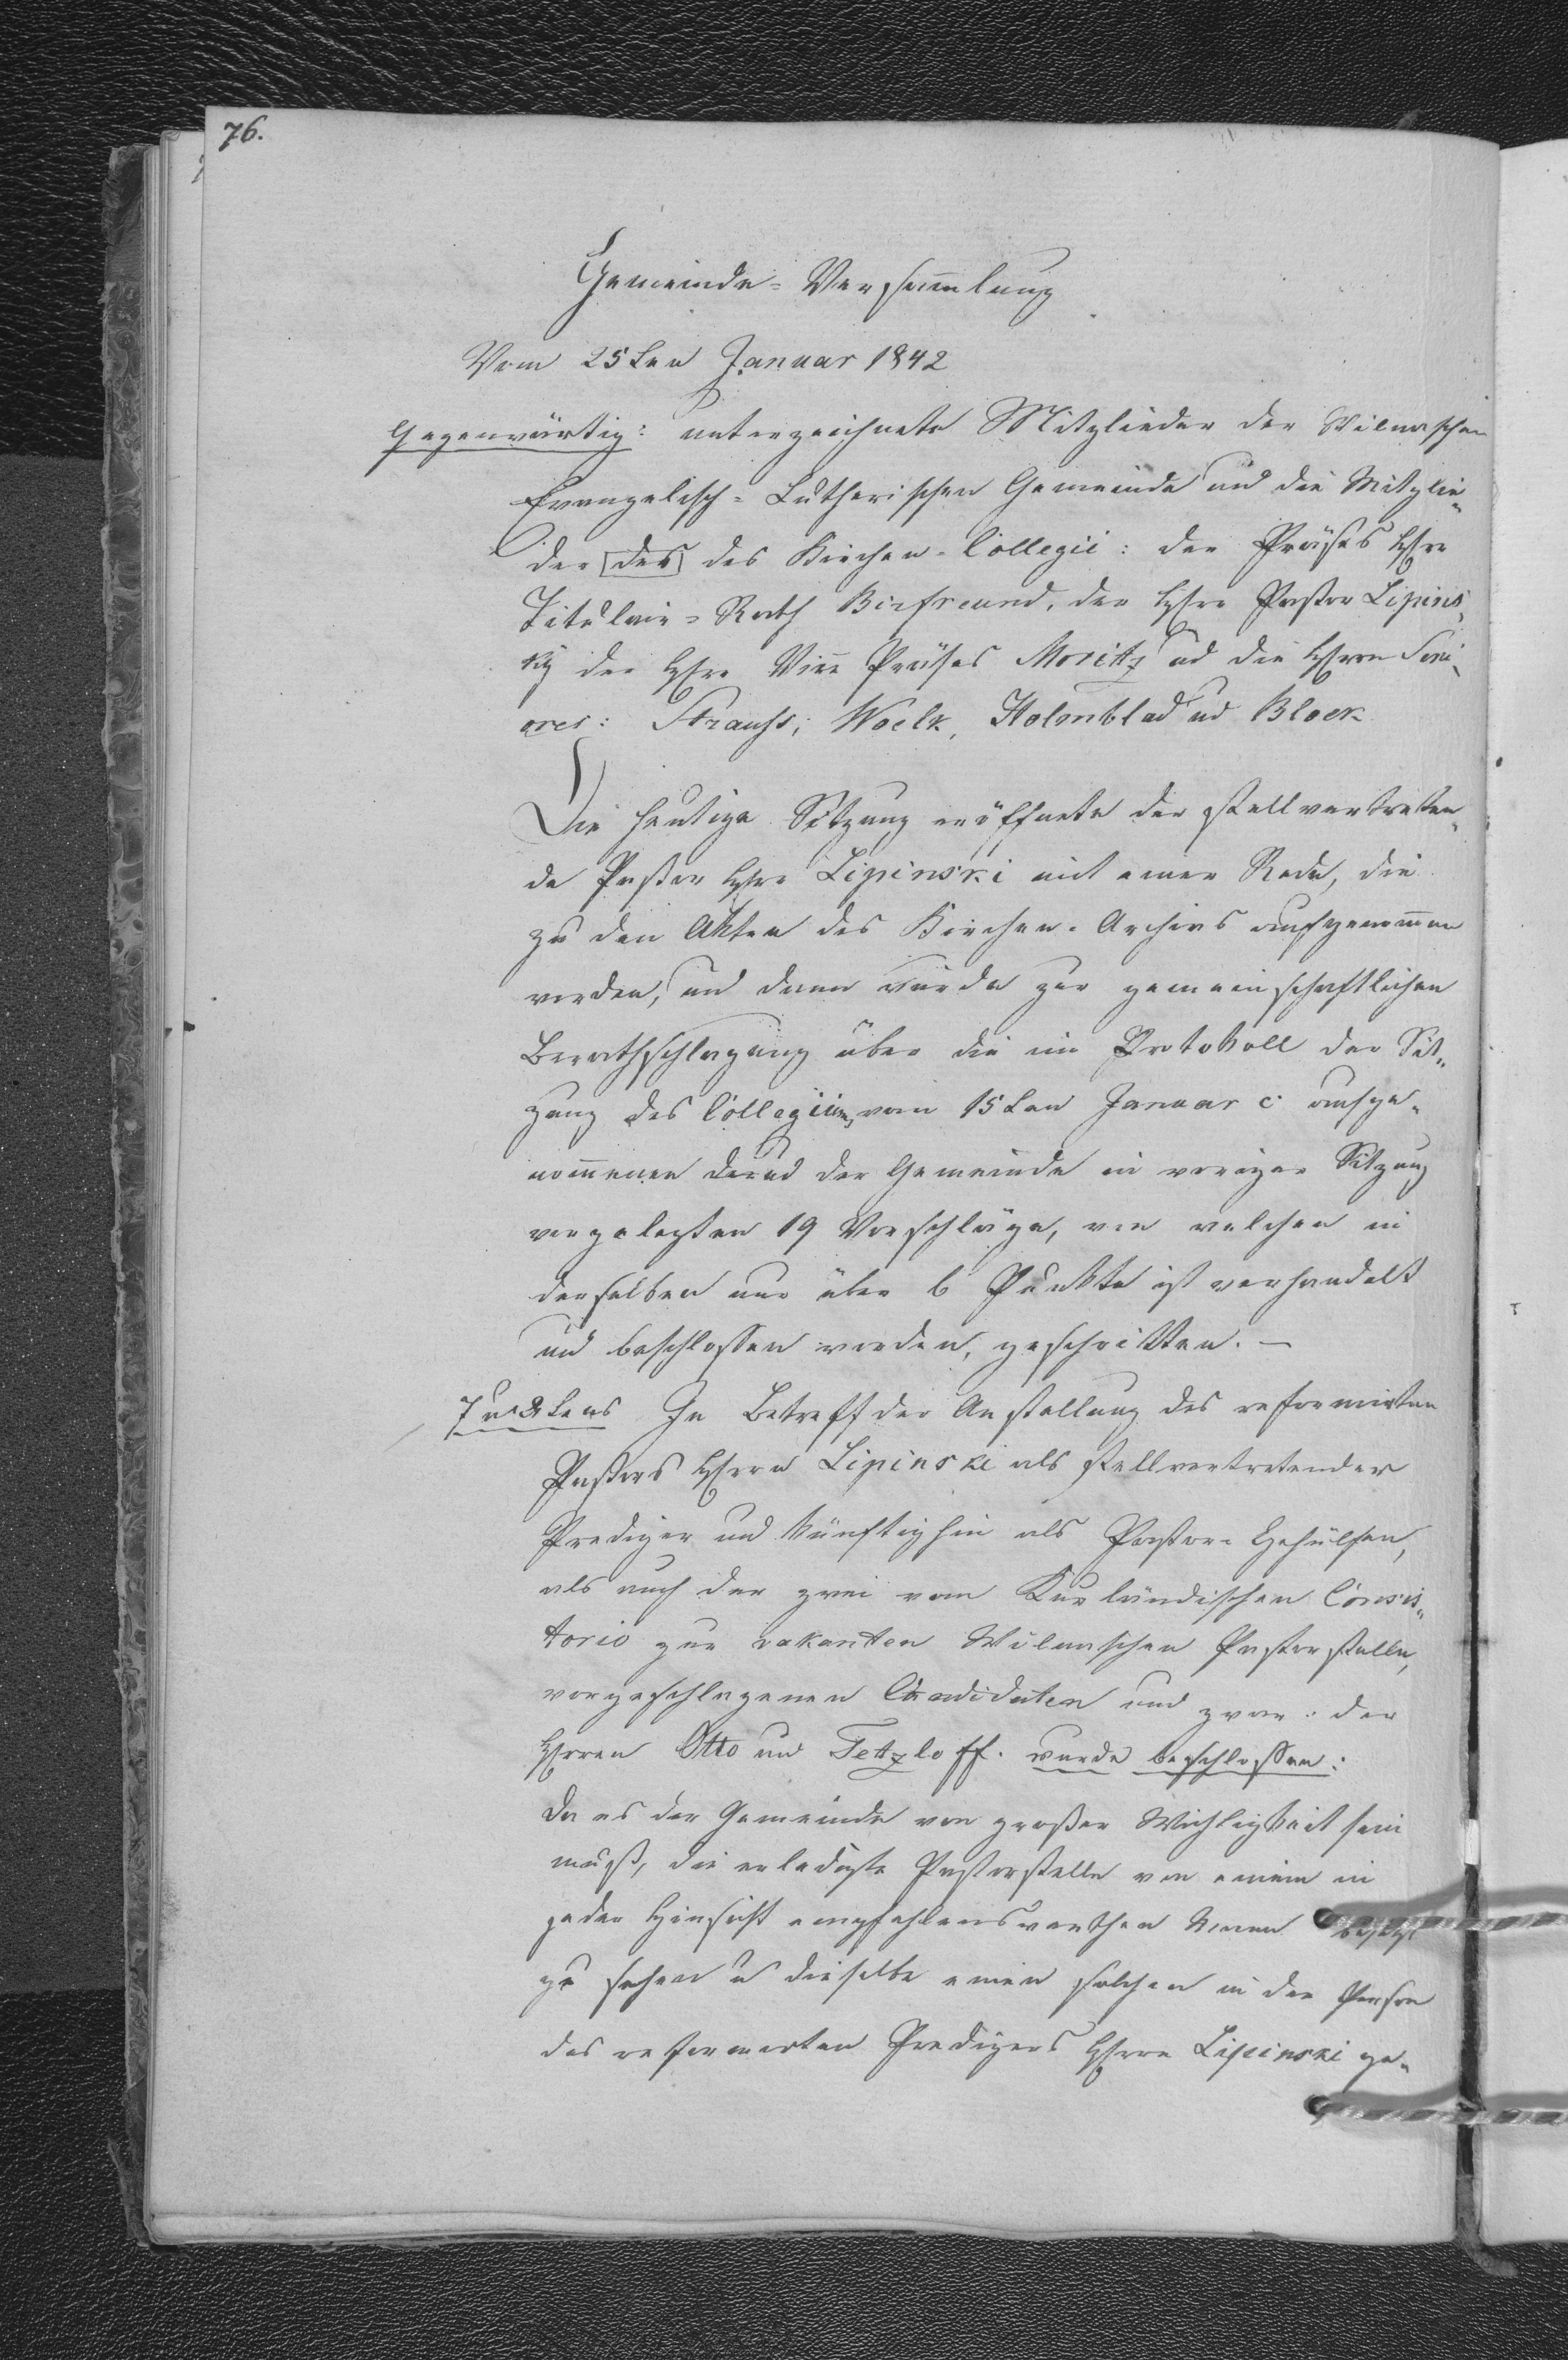 76.
Gemeinde-Versam̄lung
Vom 25ten Januar 1842
Gegenwärtig: unterzeichnete Mitglieder der Wilnaschen
Evangelisch-Lutherischen Gemeinde und die Mitglie-
der [des] des Kirchen-Collegii: der Präses Herr
Titulair-Rath Biefreund, der Herr Pastor Lipins-
ky der Herr Vice Präses Moritz und die Herrn Seni-
ores: Strauss, Woelk, Holonblad und Block
Die heutige Sitzung eröffnete der stellvertreten-
de Pastor Herr Lipinski mit einer Rede, die
zu den Akten des Kirchen-Archivs aufgenom̄en
worden, und dann wurde zur gemeinschaftlichen
Berathschlagung über die im Protokoll der Sit-
zung des Collegiums vom 15ten Januar c. aufge-
nom̄enen und der Gemeinde in voriger Sitzung
vorgelegten 19 Vorschläge, von welchen in
derselben nur über 6 Punkte ist verhandelt
und beschlossen worden, geschritten. —
7 u 8tens In Betreff der Anstellung des reformirten
Pastors Herrn Lipinski als stellvertretender
Prediger und künftighin als Pastor-Gehülfen,
als auch der zwei vom Kurländischen Consis-
torio zur vakanten Wilnaschen Pastorstelle,
vorgeschlagenen Candidaten und zwar: der
Herren Otto und Tetzloff. wurde beschlossen:
da es der Gemeinde von großer Wichtigkeit sein
muß, die erledigte Pastorstelle von einem in
jeder Hinsicht empfehlenswerthen Mann besetzt
zu sehen u dieselbe einen solchen in der Person
des reformirten Predigers Herrn Lipinski ge-